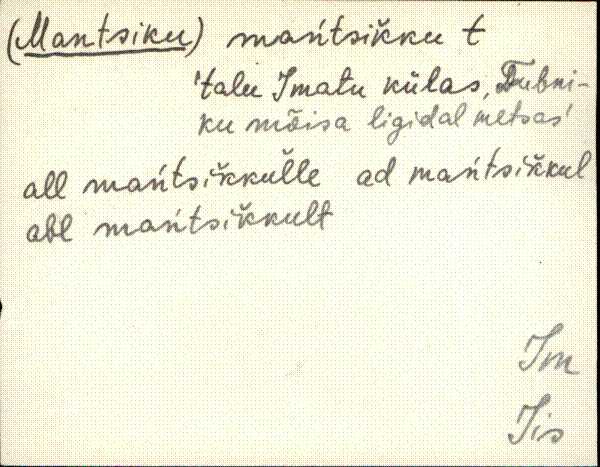 (Mantsiku) mańtsik̆ku t
'talu Imatu külas, Tubni-
ku mõisa ligidal metsas'
all mańtsik̆kul̆le ad mańtsik̆kul
abl mańtsik̆kult
Im
Jis